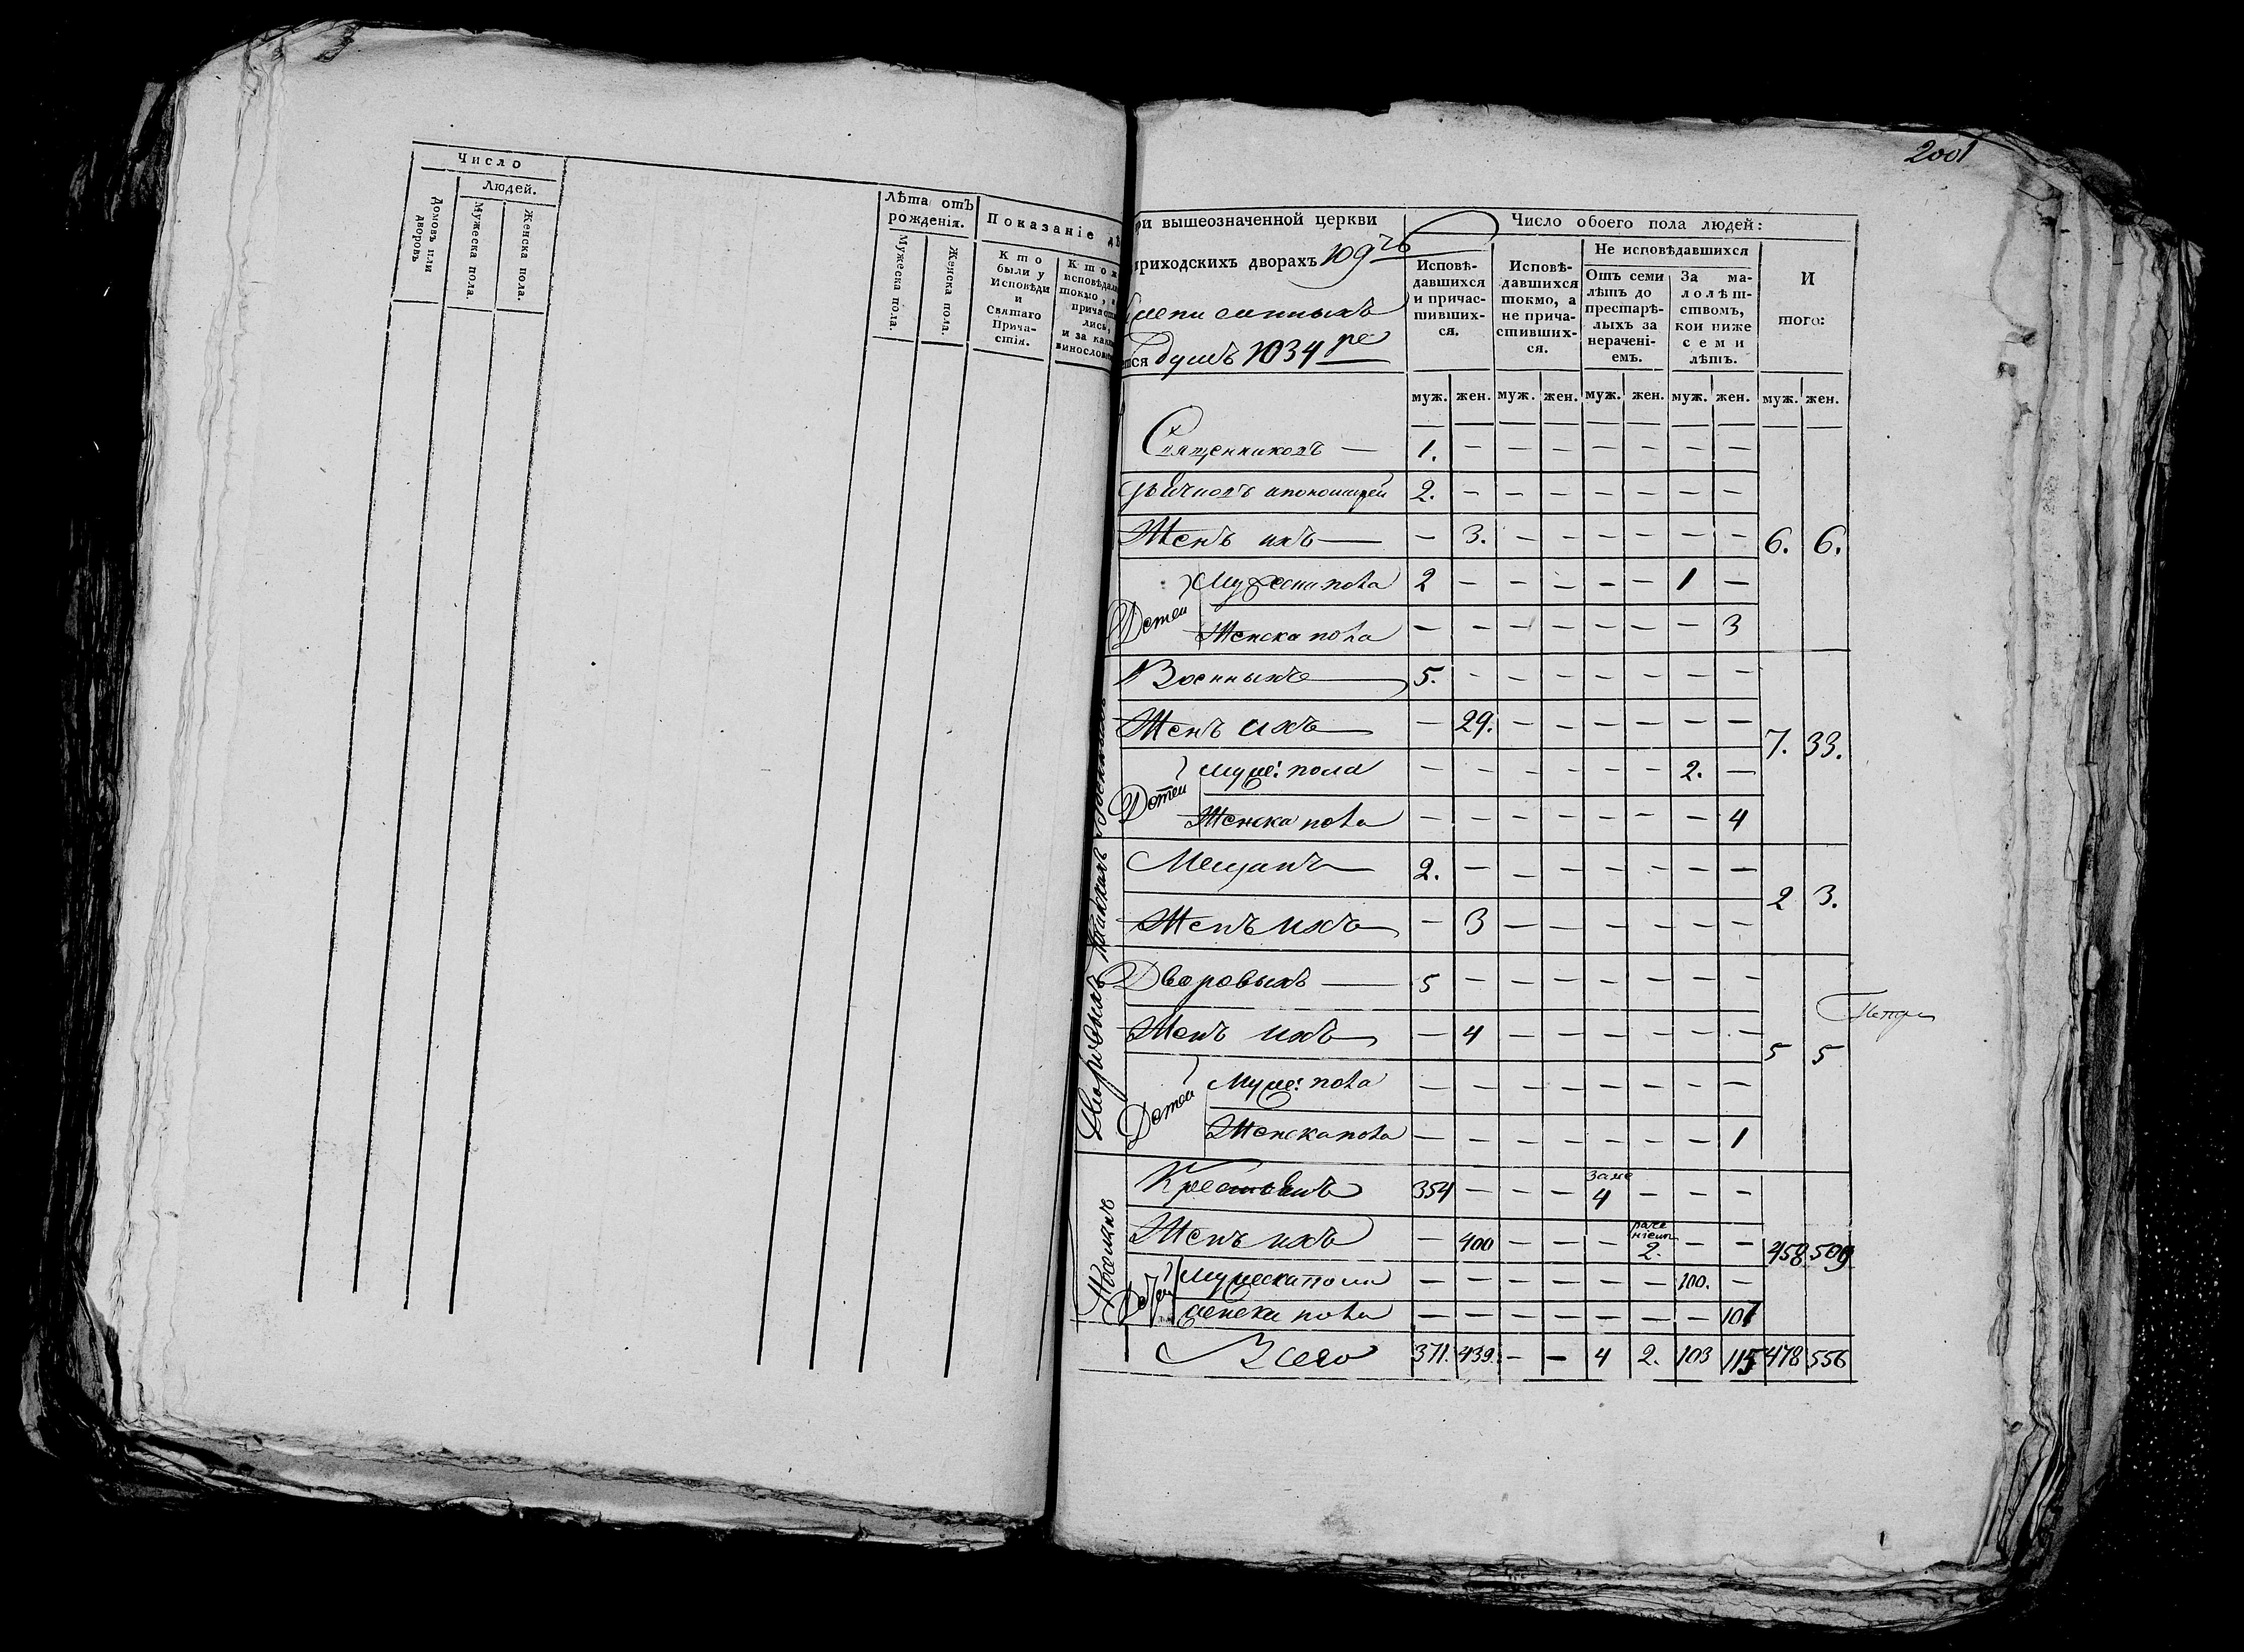 Число
Людей.
Домовъ или дворовъ
Мужеска пола.
Женска пола.
Лѣта отъ рожденія.
Мужеска пола.
Женска пола.
Показаніе
Кто были у Исповѣди и Святаго Прича-стія.
2001
ри вышеозначенной церкви
приходскихъ дворахъ 109
душъ 1034
Число обоего пола людей:
Исповѣ-давшихся и причас-тивших-ся.
Исповѣ-давшихся токмо, а не прича-стивших-ся.
Не исповѣдавшихся
Отъ семи лѣтъ до престарѣ-лыхъ за нерачені-емъ.
За ма-лолѣт-ствомъ, кои ниже семи лѣтъ.
И того:
муж. жен. муж. жен. муж. жен. муж. жен. муж. жен.
Священниковъ — 1. — — — — — — —
2. — — — — — — —
Женъ ихъ — — 3. — — — — — — 6. 6.
Детей Мужеска пола 2 — — — — — 1 —
Женска пола — — — — — — — 3
Военныхъ 5. — — — — — — —
Женъ ихъ — 29. — — — — — — 7. 33.
Детей муже: пола — — — — — — 2. —
Женска пола — — — — — — — 4
Мещанъ 2. — — — — — — —
Женъ ихъ — 3 — — — — — — 2 3.
Дворовыхъ — 5 — — — — — — —
Женъ ихъ — 4 — — — — — — 5 5
Детей Муже: пола — — — — — — — —
Женска пола — — — — — — — 1
Крестьянъ 354 — — — зане 4 — — —
Женъ ихъ — 400 — — — раче ніемъ 2. — — 458 509
Детей мужеска пола — — — — — — 100. —
женска пола — — — — — — — 107
Всего 371. 439. — — 4 2. 103 115 478 556